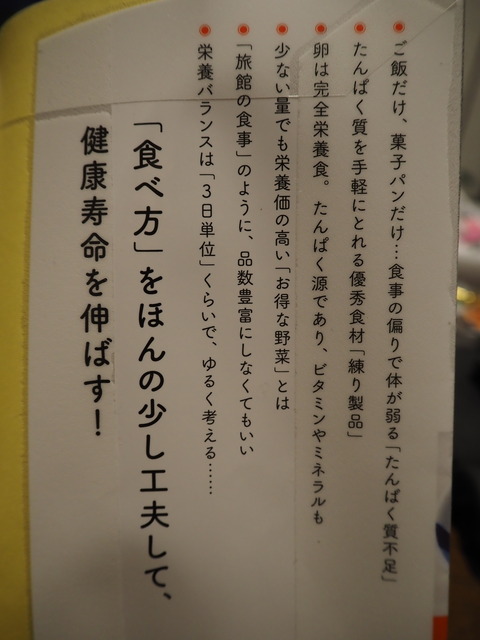 ご飯だけ、菓子パンだけ…食事の偏りで体が弱る「たんぱく質不足」
たんぱく質を手軽にとれる優秀食材「練り製品」
卵は完全栄養食。たんぱく源であり、ビタミンやミネラルも
少ない量でも栄養価の高い「お得な野菜」とは
「旅館の食事」のように、品数豊富にしなくてもいい
栄養バランスは「3日単位」くらいで、ゆるく考える……
「食べ方」をほんの少し工夫して、
健康寿命を伸ばす!